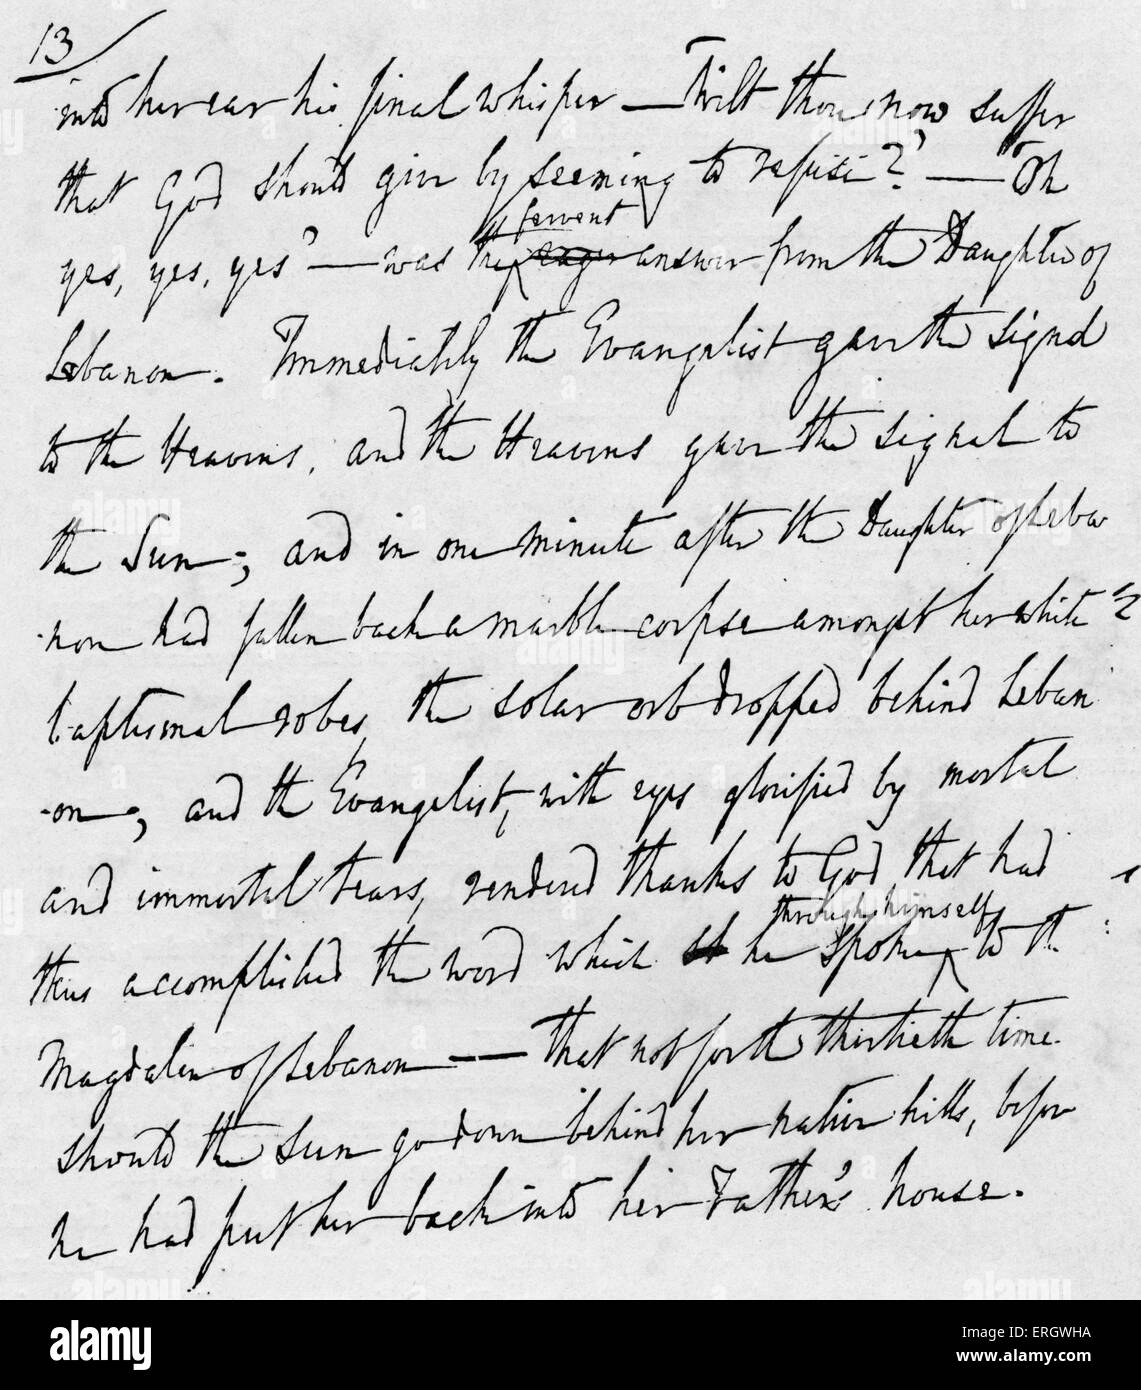 13
into her ear his final whisper — Wilt thou now suffer
that God should give by seeming to refuse?" — "Oh
yes, yes, yes" — was the eager fervent answer from the Daughter of
Lebanon. Immediately the Evangelist gave the signal
to the Heavens, and the Heavens gave the signal to
the Sun; and in one minute after the Daughter of Leba
non had fallen back a marble corpse amongst her white
baptismal robes, the solar orb dropped behind Leban
-on; and the Evangelist, with eyes glorified by mortal
and immortal tears, rendered thanks to God that had
thus accomplished the word which he spoke through himself to the
Magdalen of Lebanon —— that not for the thirtieth time
should the Sun go down behind her native hills, before
he had put her back into her Father's house.
alamy
Image ID: ERGWHA
www.alamy.com